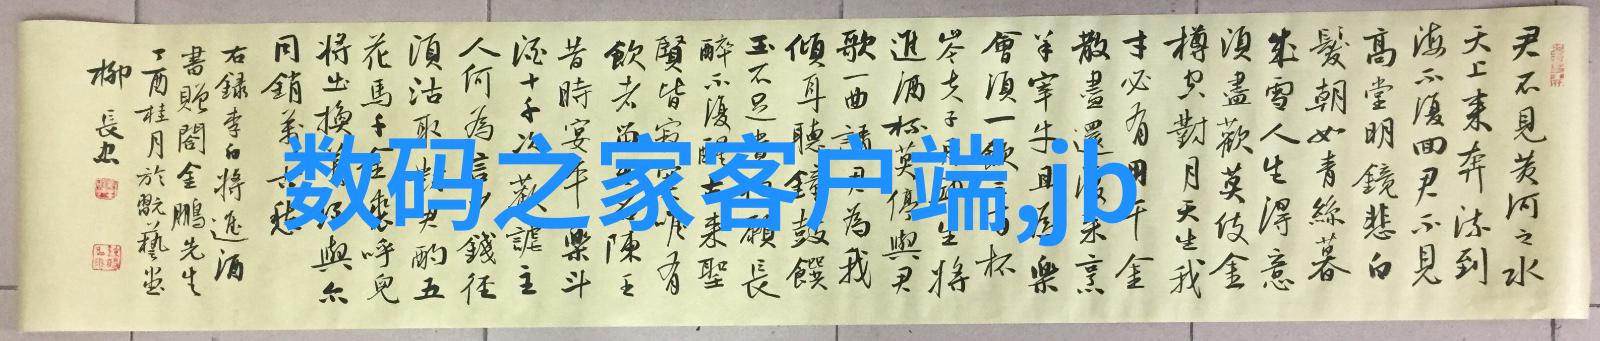 君不見黃河之水
天上來奔流到
海不復回君不見
高堂明鏡悲白
髮朝如青絲暮
成雪人生得意
須盡歡莫使金
樽空對月天生我
才必有用千金
散盡還復來烹
羊宰牛且為樂
會須一飲三百杯
岑夫子丹丘生將
進酒杯莫停與君
歌一曲請君為我
傾耳聽鐘鼓饌
玉不足貴但願長
醉不復醒古來聖
賢皆寂寞唯有
飲者留其名陳王
昔時宴平樂斗
酒十千恣歡謔主
人何為言少錢徑
須沽取對君酌五
花馬千金裘呼兒
將出換美酒與爾
同銷萬古愁
右錄李白將進酒
書贈閻金鵬先生
丁酉桂月於翫藝堂
柳長忠
数码之家客户端,jb